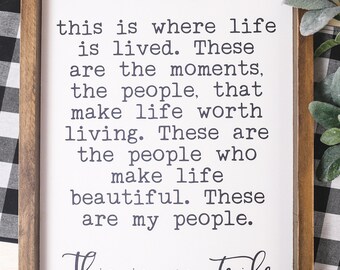 this is where life
is lived. These
are the moments,
the people, that
make life worth
living. These are
the people who
make life
beautiful. These
are my people.
This is my tribe